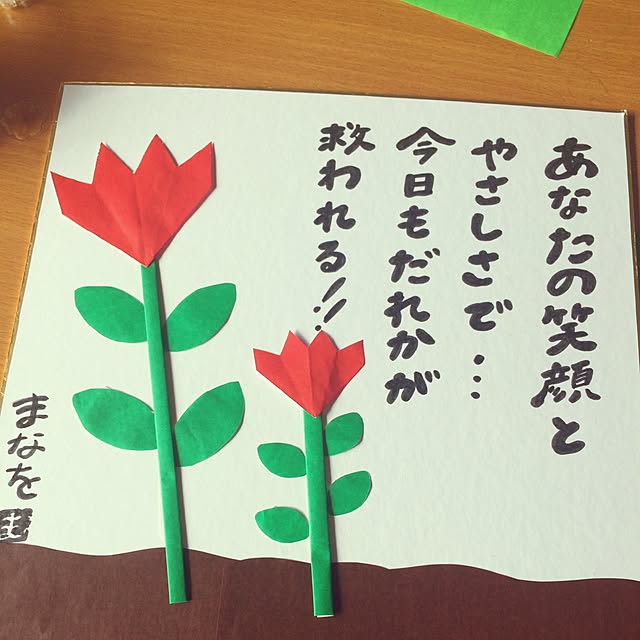 あなたの笑顔と
やさしさで…
今日もだれかが
救われる!!
まなを